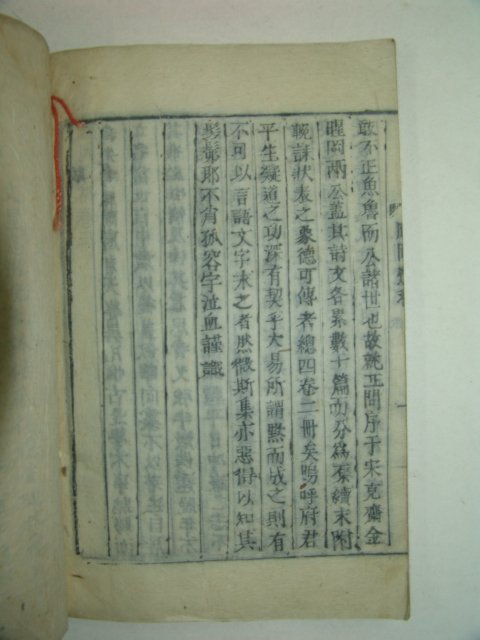 敢不正魚魯而公諸世也故就正問序于宋克齋金
惺岡兩公盖其詩文各累數十篇而分爲原續末附
輓誄狀表之彖德可傳者總四卷二冊矣嗚呼府君
平生凝道之功深有契乎大易所謂黙而成之則有
不可以言語文字求之者然微斯集亦惡得以知其
髣髴耶不肖孤容字泣血謹識